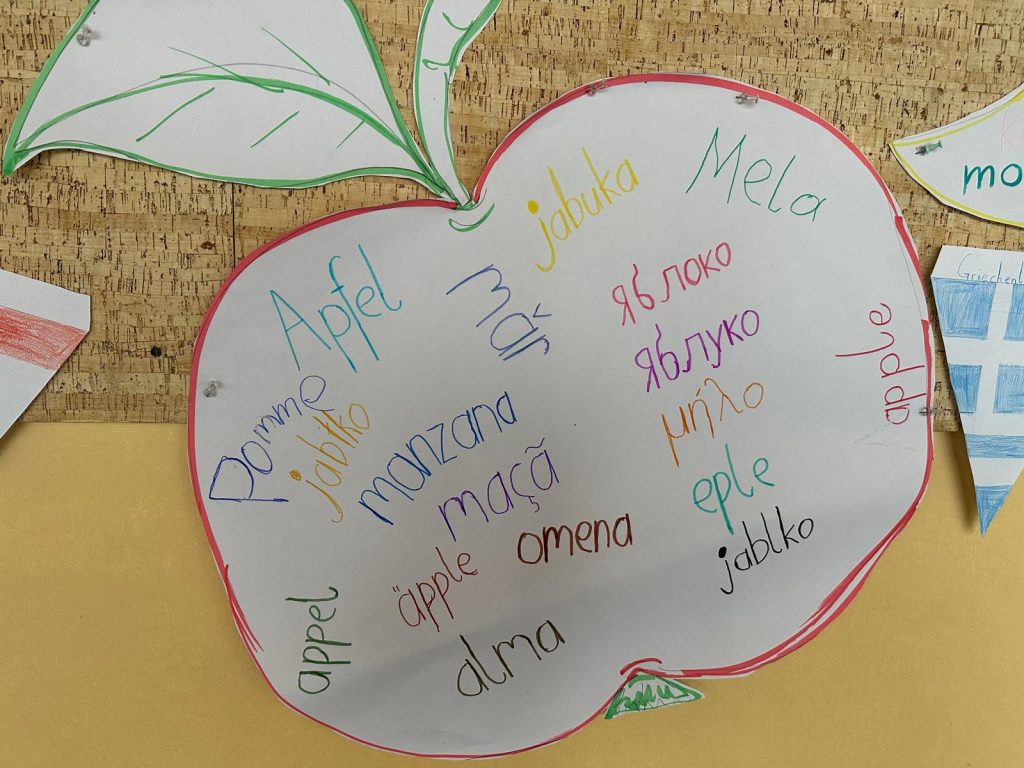 jabuka
Mela
Apfel
măr
яблоко
яблуко
apple
Pomme
jabłko
manzana
μήλο
maçã
eple
omena
jablko
äpple
appel
alma
mo